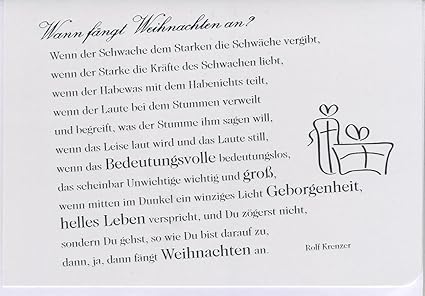 Wann fängt Weihnachten an?
Wenn der Schwache dem Starken die Schwäche vergibt,
wenn der Starke die Kräfte des Schwachen liebt,
wenn der Habewas mit dem Habenichts teilt,
wenn der Laute bei dem Stummen verweilt
und begreift, was der Stumme ihm sagen will,
wenn das Leise laut wird und das Laute still,
wenn das Bedeutungsvolle bedeutungslos,
das scheinbar Unwichtige wichtig und groß,
wenn mitten im Dunkel ein winziges Licht Geborgenheit,
helles Leben verspricht, und Du zögerst nicht,
sondern Du gehst, so wie Du bist darauf zu,
dann, ja, dann fängt Weihnachten an.
Rolf Krenzer